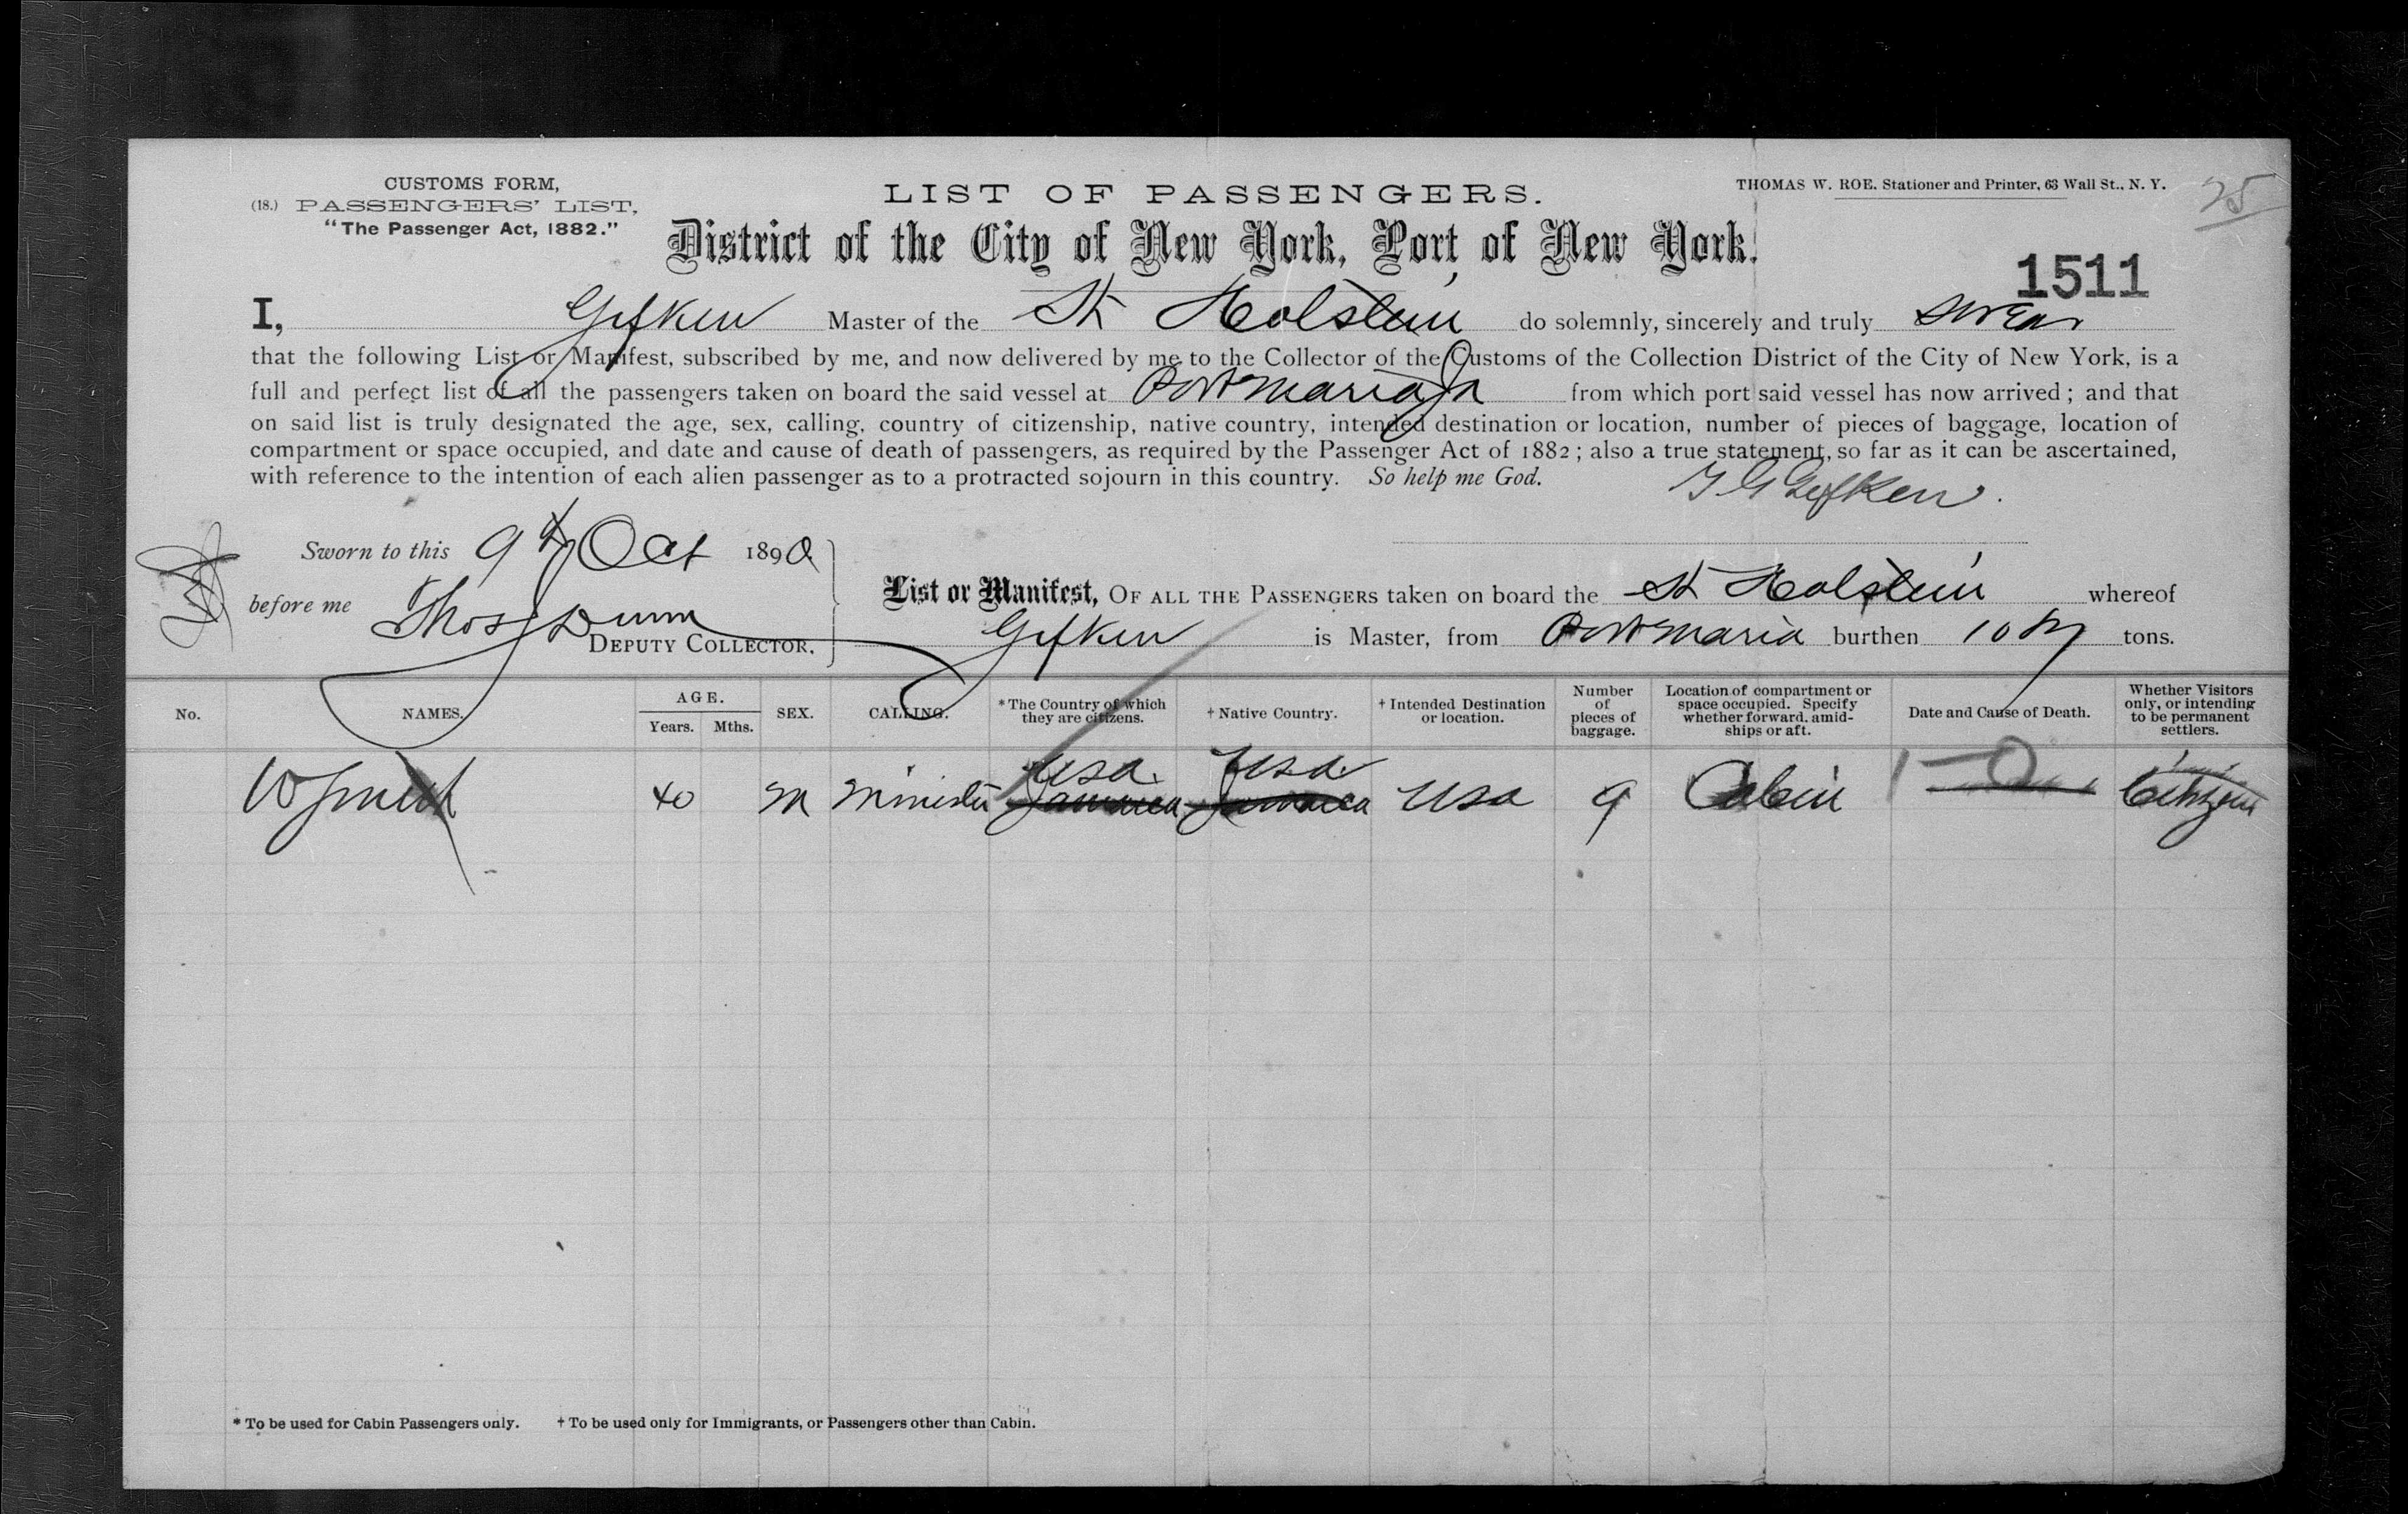 CUSTOMS FORM,
(18.) PASSENGERS' LIST,
"The Passenger Act, 1882."
LIST OF PASSENGERS.
THOMAS W. ROE. Stationer and Printer, 63 Wall St., N. Y.
25
District of the City of New York, Port of New York.
1511
I, Gefken Master of the St Holstein do solemnly, sincerely and truly swear
that the following List or Manifest, subscribed by me, and now delivered by me to the Collector of the Customs of the Collection District of the City of New York, is a
full and perfect list of all the passengers taken on board the said vessel at Port Maria Ja from which port said vessel has now arrived; and that
on said list is truly designated the age, sex, calling, country of citizenship, native country, intended destination or location, number of pieces of baggage, location of
compartment or space occupied, and date and cause of death of passengers, as required by the Passenger Act of 1882; also a true statement, so far as it can be ascertained,
with reference to the intention of each alien passenger as to a protracted sojourn in this country. So help me God.
Gefken
Sworn to this 9th Oct 1890
before me Thos Dunn
DEPUTY COLLECTOR.
List or Manifest, OF ALL THE PASSENGERS taken on board the St Holstein whereof
Gefken is Master, from Port Maria burthen tons.
No. NAMES. AGE. Years. Mths. SEX. CALLING. *The Country of which they are citizens. †Native Country. †Intended Destination or location. Number of pieces of baggage. Location of compartment or space occupied. Specify whether forward, amidships or aft. Date and Cause of Death. Whether Visitors only, or intending to be permanent settlers.
Usa. Usa
W Smith 40 M Minister Jamaica Jamaica Usa 9 Cabin Citizen
* To be used for Cabin Passengers only. † To be used only for Immigrants, or Passengers other than Cabin.